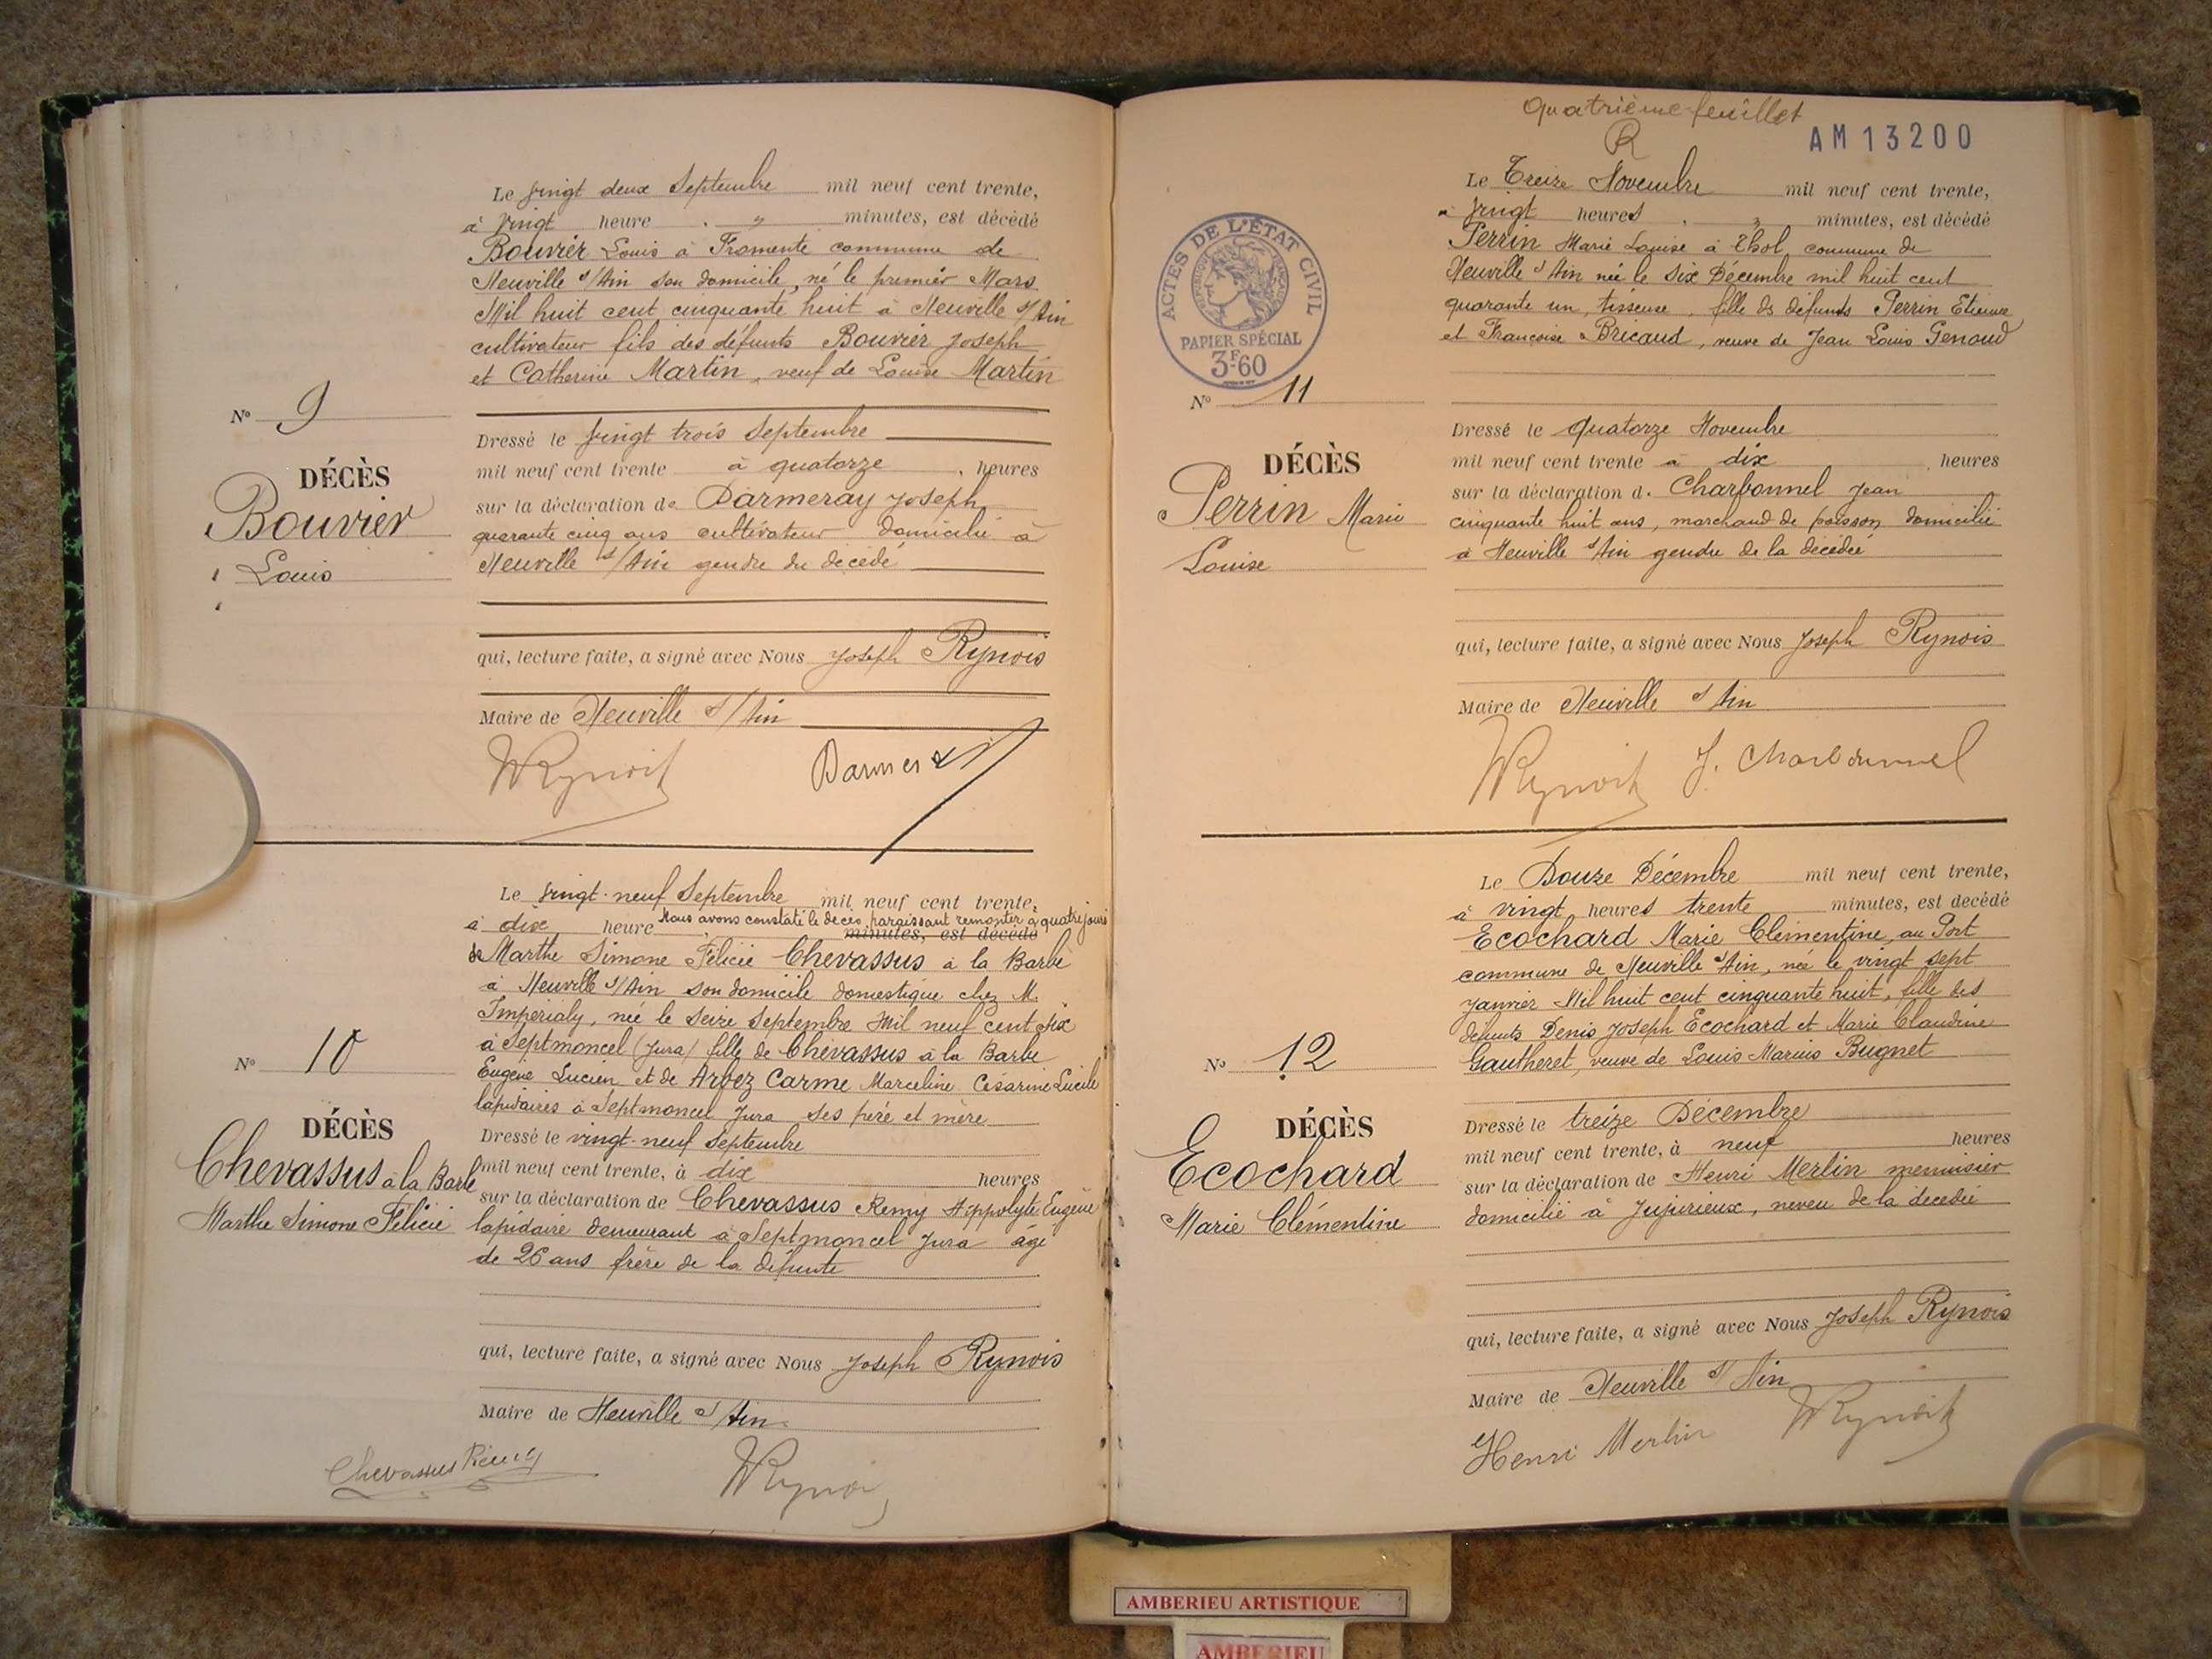 Le vingt deux Septembre mil neuf cent trente,
à vingt heure . " minutes, est décédé
Bouvier Louis à Fromente commune de
Neuville s/Ain son domicile, né le premier Mars
Mil huit cent cinquante huit à Neuville s/Ain
cultivateur fils des défunts Bouvier Joseph
et Catherine Martin, veuf de Louise Martin
N° 9
DÉCÈS
Bouvier
Louis
Dressé le vingt trois Septembre
mil neuf cent trente à quatorze , heures
sur la déclaration de Darmeray Joseph
quarante cinq ans cultivateur domicilié à
Neuville s/Ain gendre du décédé
qui, lecture faite, a signé avec Nous Joseph Rynois
Maire de Neuville s/Ain
Le vingt-neuf Septembre mil neuf cent trente,
à dix heure Nous avons constaté le décès, paraissant remonter à quatre jours
minutes, est décédé
de Marthe Simone Félicie Chevassus à la Barbe
à Neuville s/Ain son domicile domestique chez M.
Imperialy, née le Seize Septembre Mil neuf cent six
à Septmoncel (Jura) fille de Chevassus à la Barbe
Eugène Lucien et de Arbez Carme Marceline Césarine Lucile
lapidaires à Septmoncel Jura ses père et mère
N° 10
DÉCÈS
Chevassus à la Barbe
Marthe Simone Félicie
Dressé le vingt-neuf Septembre
mil neuf cent trente, à dix heures
sur la déclaration de Chevassus Remy Hippolyte Eugène
lapidaire demeurant à Septmoncel Jura âgé
de 26 ans frère de la défunte
qui, lecture faite, a signé avec Nous Joseph Rynois
Maire de Neuville s/Ain
Chevassus Rémy
Quatrième feuillet
R
AM 13200
Le Treize Novembre mil neuf cent trente,
à vingt heures . " minutes, est décédé
Perrin Marie Louise à Thol commune de
Neuville s/Ain née le six Décembre mil huit cent
quarante un, tisseuse, fille ds défunds Perrin Etienne
et Françoise Bricaud, veuve de Jean Louis Genoud
ACTES DE L'ÉTAT CIVIL
RÉPUBLIQUE FRANÇAISE
PAPIER SPÉCIAL
3F60
N° 11
DÉCÈS
Perrin Marie
Louise
Dressé le Quatorze Novembre
mil neuf cent trente à dix , heures
sur la déclaration d. Charbonnel Jean
cinquante huit ans, marchand de poisson domicilié
à Neuville s/Ain gendre de la décédée
qui, lecture faite, a signé avec Nous Joseph Rynois
Maire de Neuville s/Ain
J. Charbonnel
Le Douze Décembre mil neuf cent trente,
à vingt heures trente minutes, est decédé
Ecochard Marie Clémentine, au Port
commune de Neuville s/Ain, née le vingt sept
Janvier Mil huit cent cinquante huit, fille des
défunts Denis Joseph Ecochard et Marie Claudine
Gautheret, veuve de Louis Marius Bugnet
N° 12
DÉCÈS
Ecochard
Marie Clémentine
Dressé le treize Décembre
mil neuf cent trente, à neuf heures
sur la déclaration de Henri Merlin menuisier
domicilié à Jujurieux, neveu de la décédée
qui, lecture faite, a signé avec Nous Joseph Rynois
Maire de Neuville s/Ain
Henri Merlin
AMBERIEU ARTISTIQUE
AMBERIEU